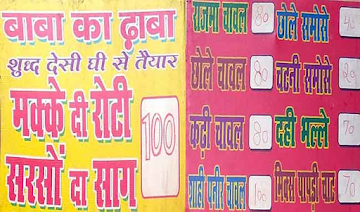 बाबा का ढ़ाबा
शुध्द देसी घी से तैयार
मक्के दी रोटी
सरसों दा साग
100
राजमा चावल 80 छोले समोसे
छोले चावल 80 चटनी समोसे
कढ़ी चावल 80 दही भल्ले
शाही पनीर चावल 100 मिक्स पापड़ी चाट